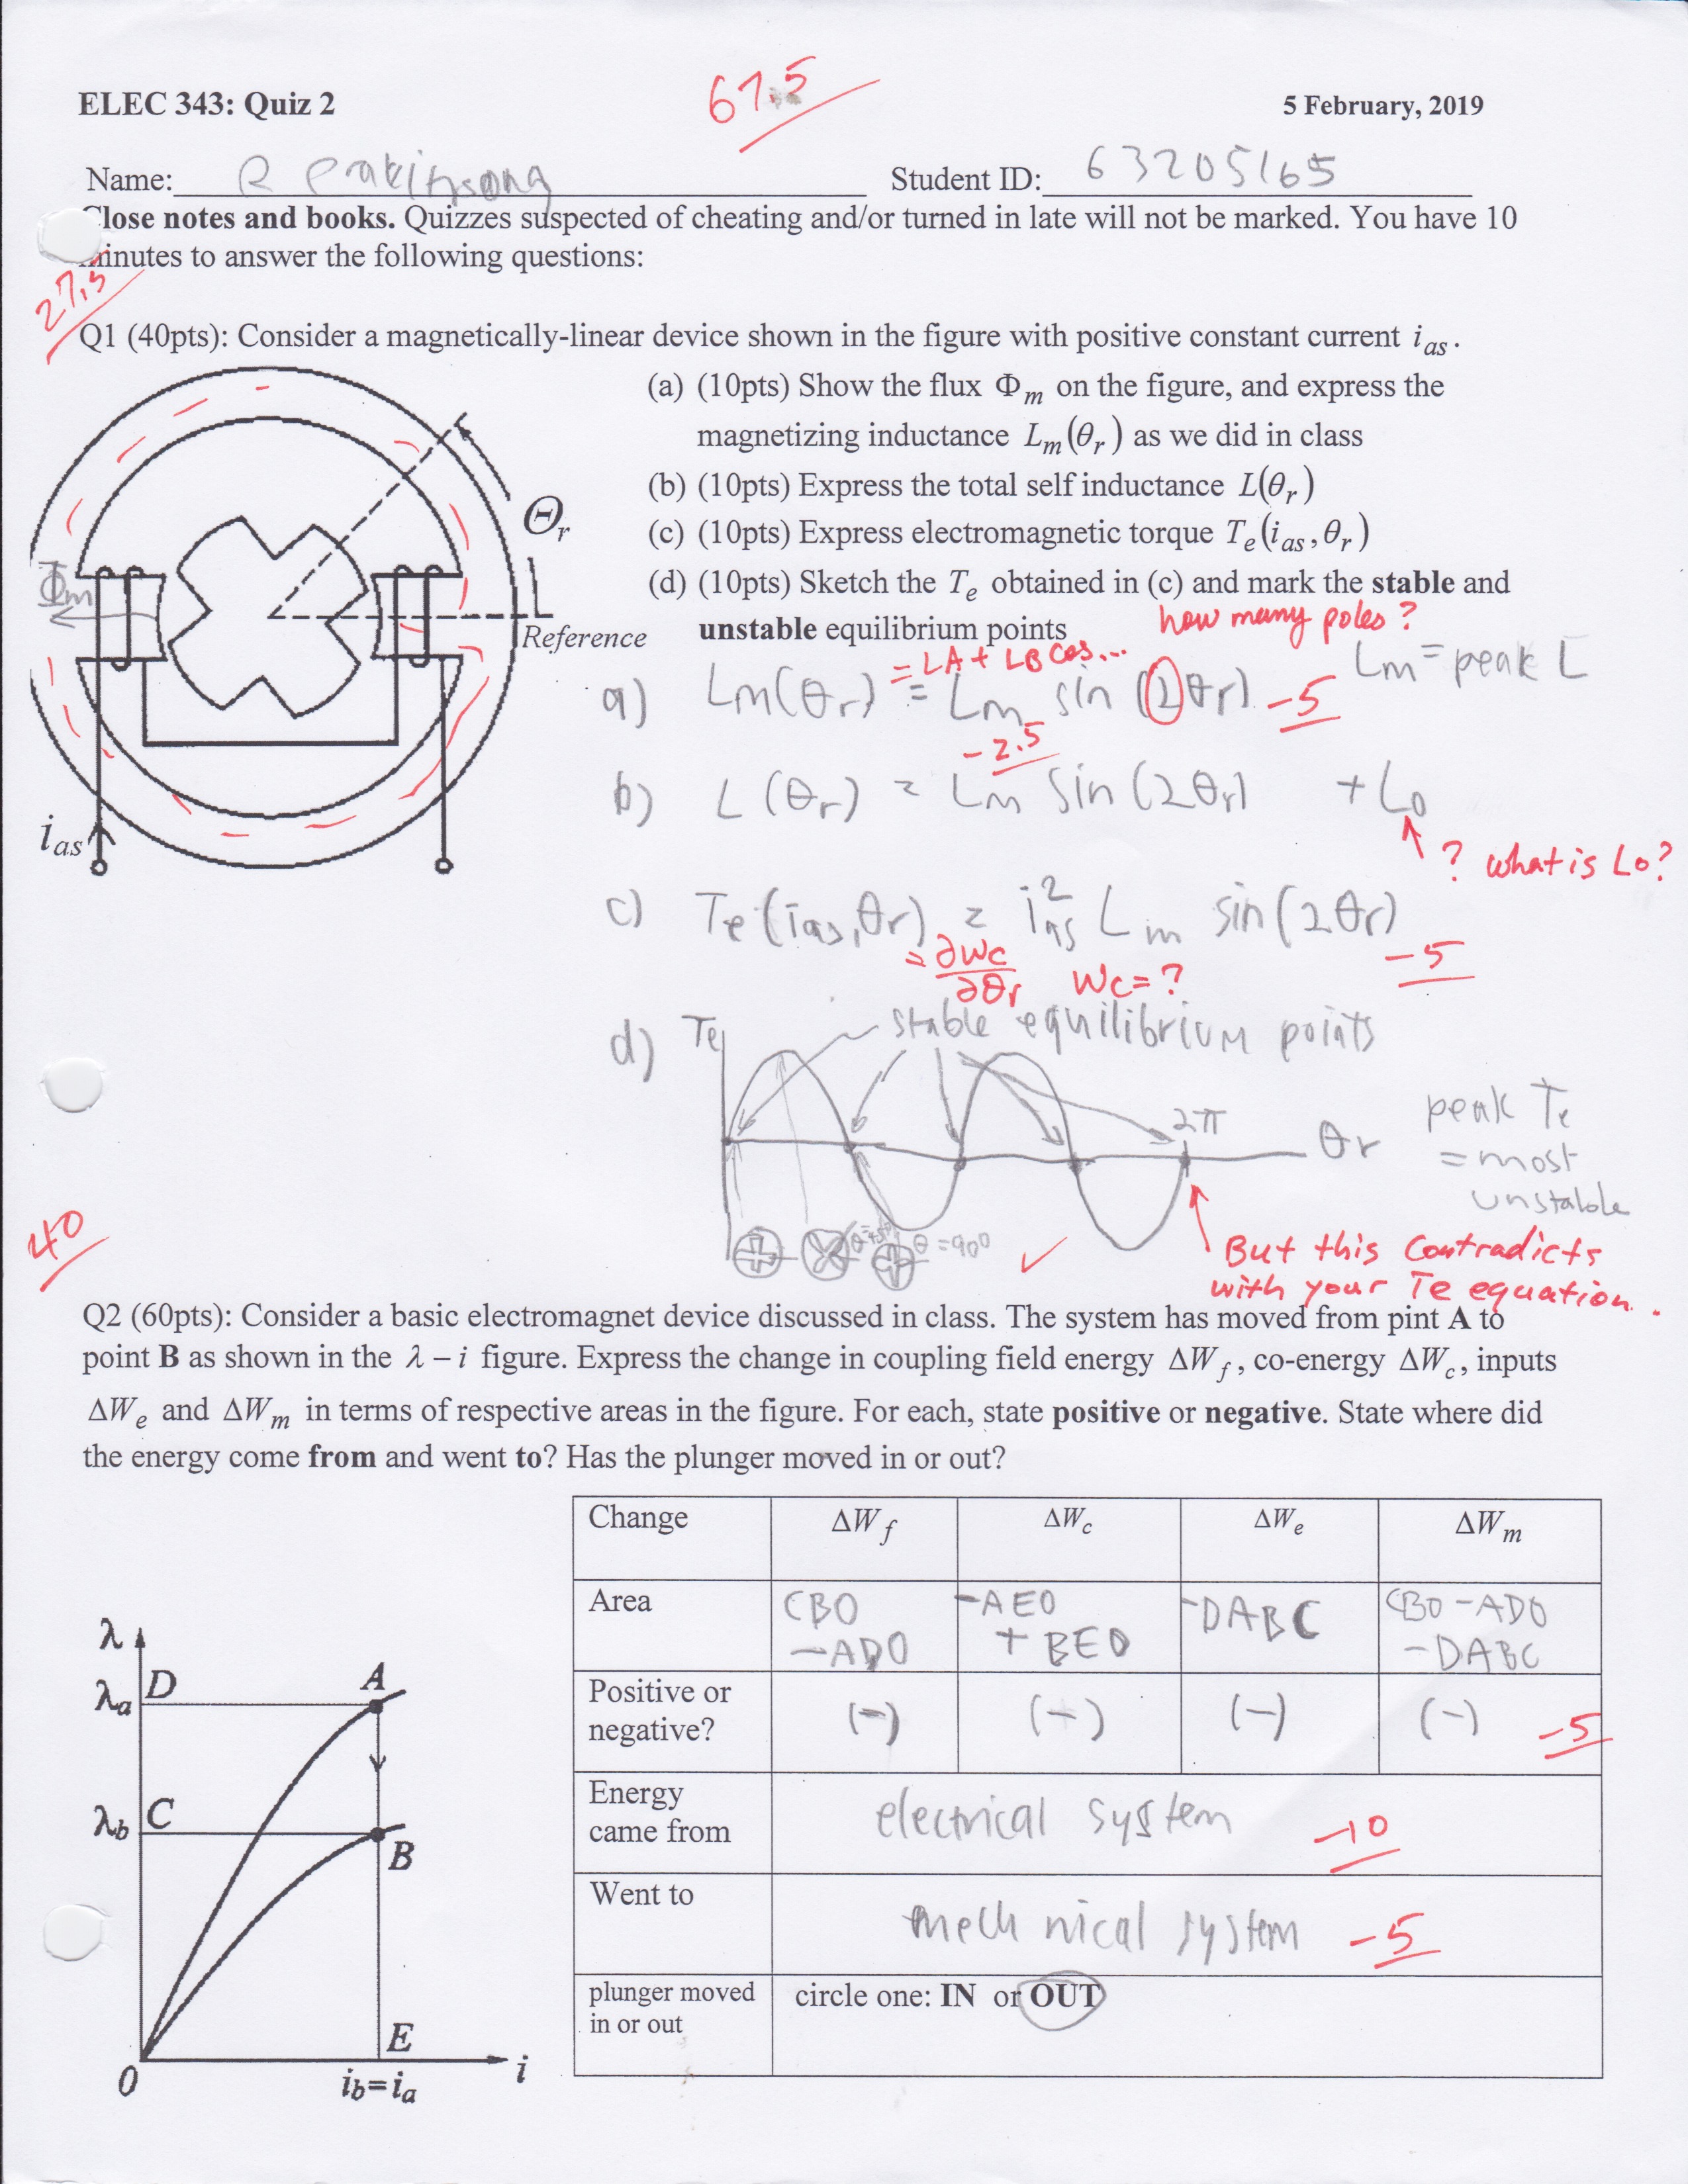 67.5
ELEC 343: Quiz 2
5 February, 2019
Name: Student ID: 63205165
Close notes and books. Quizzes suspected of cheating and/or turned in late will not be marked. You have 10
minutes to answer the following questions:
27.5
Q1 (40pts): Consider a magnetically-linear device shown in the figure with positive constant current i_as.
(a) (10pts) Show the flux Φ_m on the figure, and express the
magnetizing inductance L_m(θ_r) as we did in class
(b) (10pts) Express the total self inductance L(θ_r)
(c) (10pts) Express electromagnetic torque T_e(i_as, θ_r)
(d) (10pts) Sketch the T_e obtained in (c) and mark the stable and
unstable equilibrium points
Θr
Φm
Reference
i_as
how many poles?
= LA + LB cos...
Lm = peak L
a) Lm(θr) = Lm sin(2θr) -5
-2.5
b) L(θr) = Lm sin(2θr) + L0
? what is Lo?
c) Te(ias,θr) = i²as Lm sin(2θr)
-5
= ∂Wc/∂θr Wc=?
d) Te stable equilibrium points
2π
θr
peak Te
= most
unstable
θ=45° θ=90°
But this contradicts
with your Te equation.
40
Q2 (60pts): Consider a basic electromagnet device discussed in class. The system has moved from pint A to
point B as shown in the λ – i figure. Express the change in coupling field energy ΔW_f, co-energy ΔW_c, inputs
ΔW_e and ΔW_m in terms of respective areas in the figure. For each, state positive or negative. State where did
the energy come from and went to? Has the plunger moved in or out?
Change ΔW_f ΔW_c ΔW_e ΔW_m
Area CBO -AEO -DABC CBO -ADO
-ADO + BEO -DABC
Positive or
negative? (-) (-) (-) (-) -5
Energy
came from electrical system -10
Went to mechnical system -5
plunger moved
in or out circle one: IN or OUT
λ
λa D A
λb C B
E
0 ib=ia i